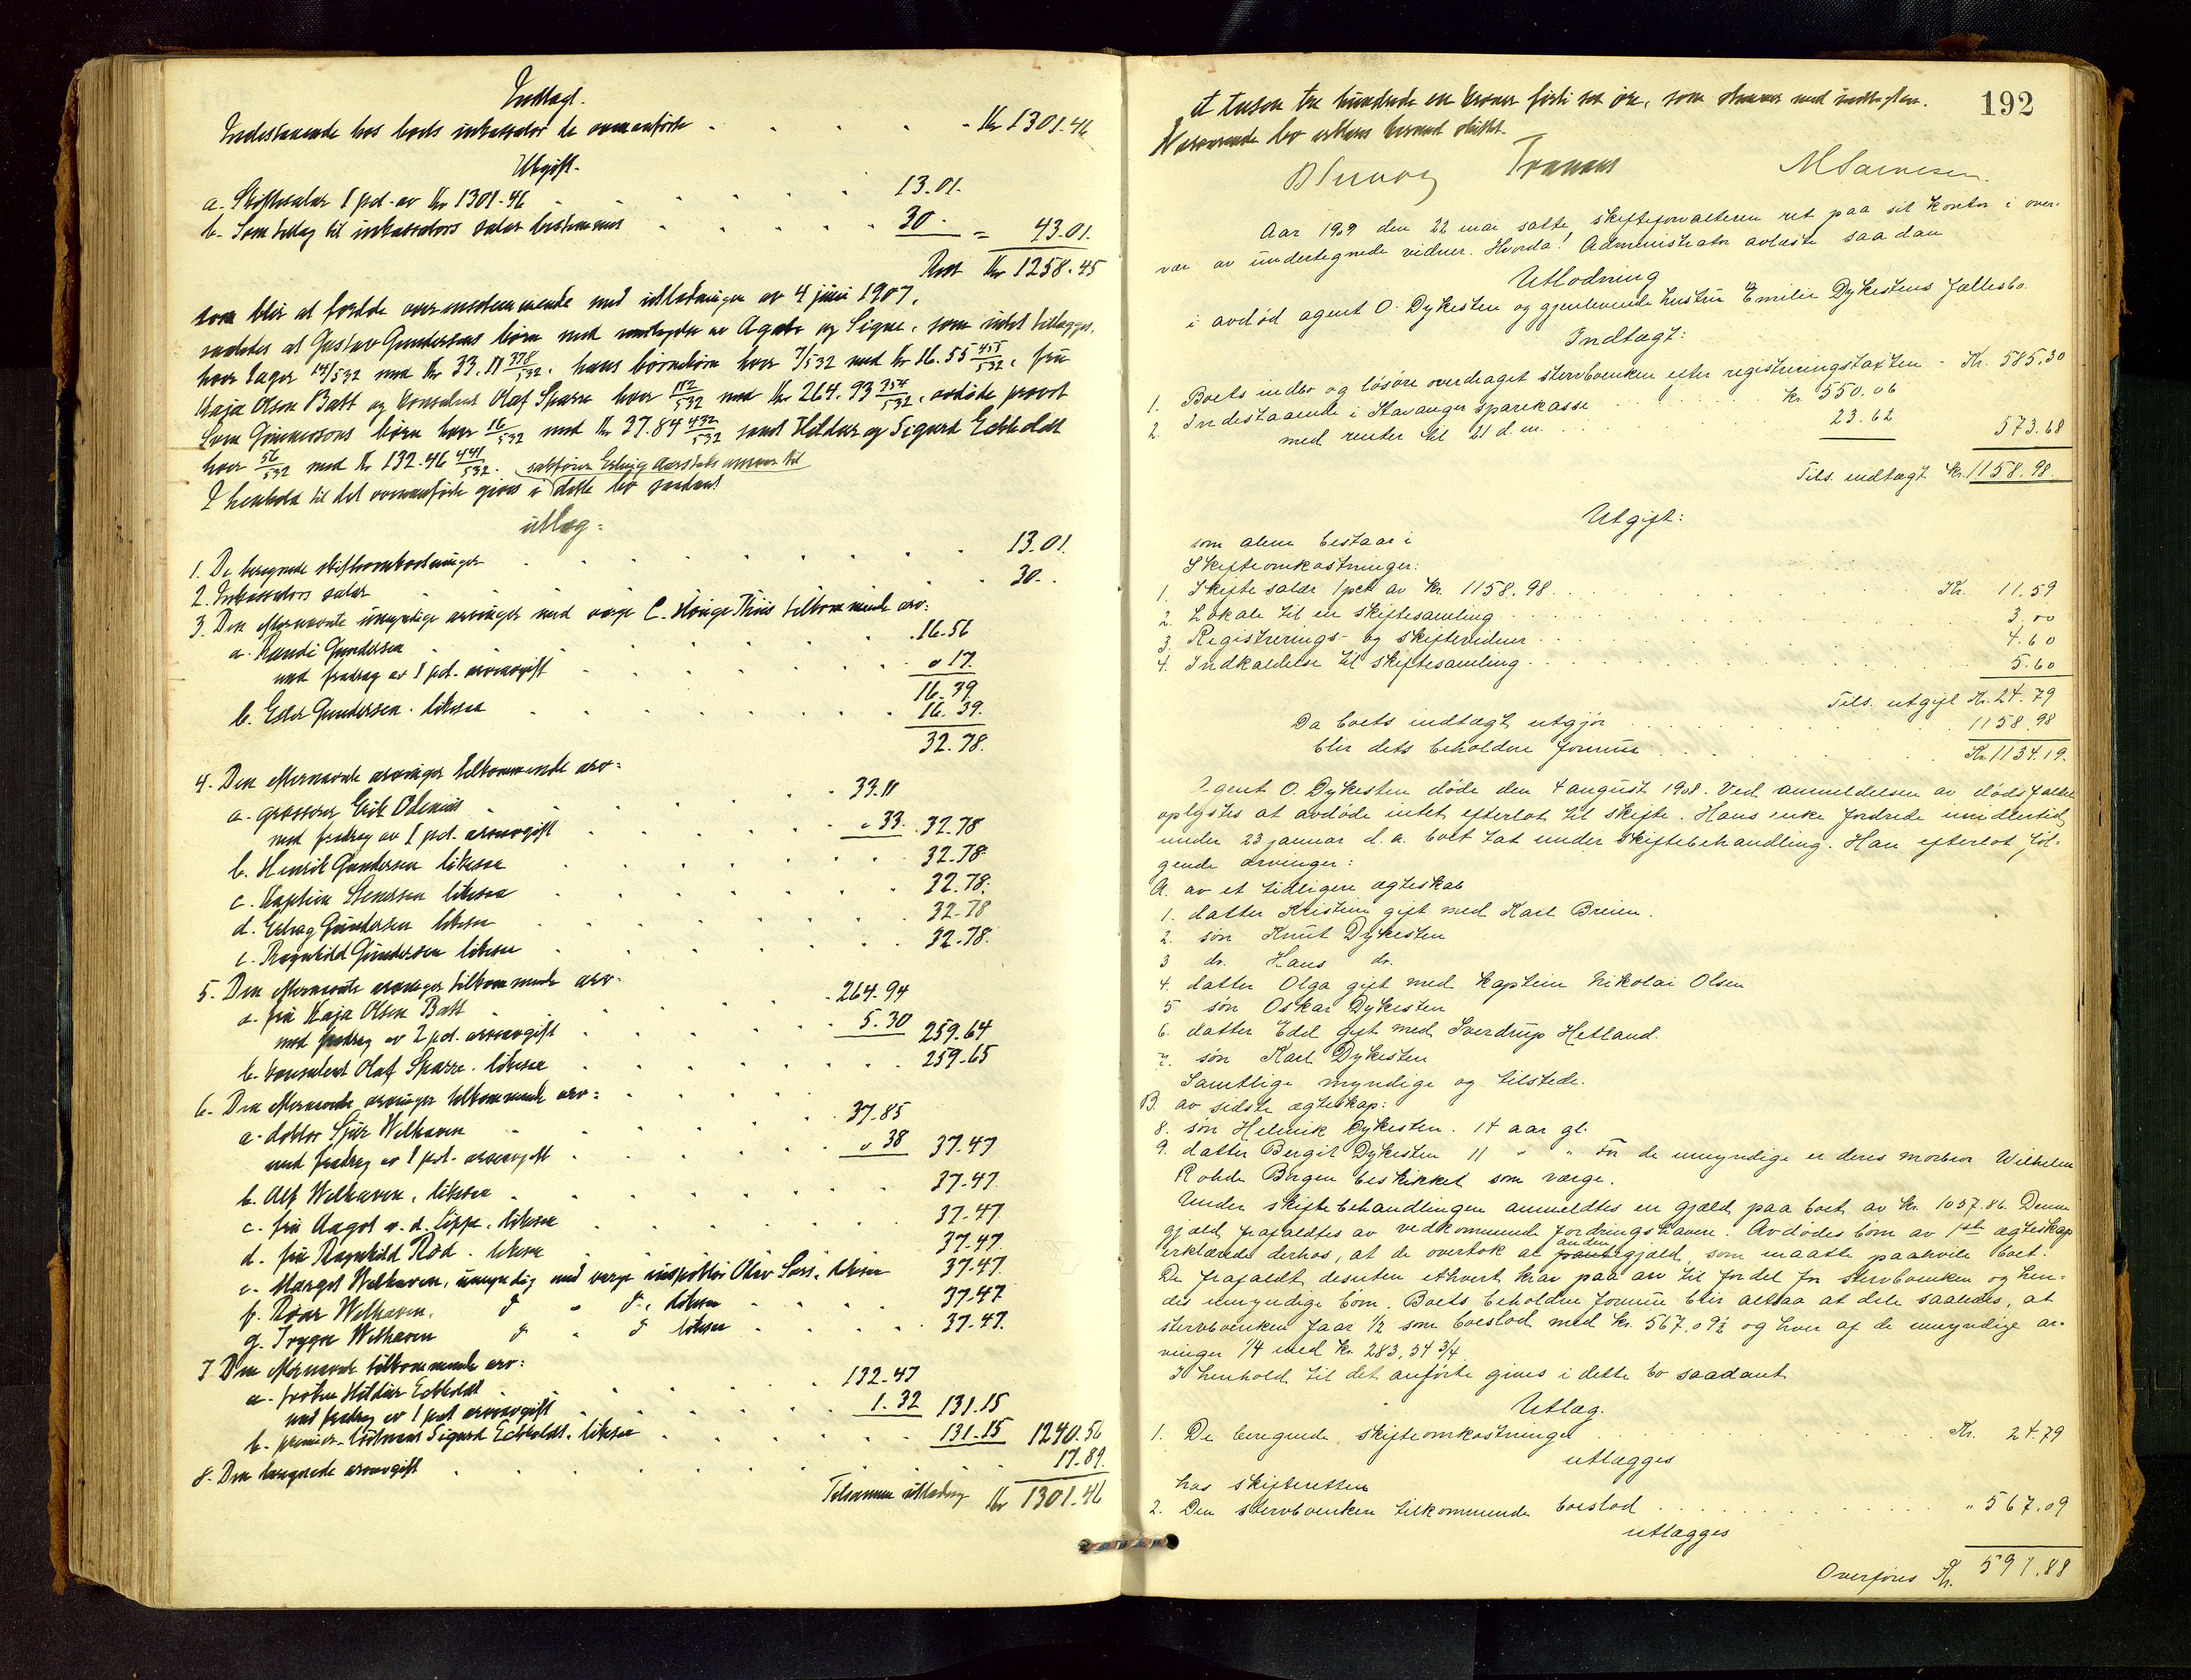 Indtægt.
Indestaaende hos boets inkassator te ovenanførte - Kr 1301.46
Utgift.
a. Skiftesalær 1 pct. av Kr 1301.46 13.01.
b. Som tillæg til inkassators salær bestemmes 30.- = 43.01.
Rest Kr 1258.45
som blir at fordele overensstemmende med utlodningen av 4 juni 1907,
saaledes at Gustav Gundersens børn med undtagelse av Agate og Signe, som intet tillægges,
hver tager 14/532 med Kr 33.11 378/532, hans børnebørn hver 7/532 med Kr 16.55 455/532, fru
Kaja Olsen Batt og konsulent Olaf Sparre hver 112/532 med Kr 264.93 354/532, avdøde provst
Sven Gunnersons børn hver 16/532 med Kr 37.84 432/532 samt Hildur og Sigurd Eckholdt
hver 56/532 med Kr 132.46 441/532.
I henhold til det ovenanførte gives i sakfører Erling Aarstads ansvar til dette bo saadant
utlæg:
1. De beregnede skifteomkostninger 13.01.
2. Inkassators salær 30.-
3. Den efternævnte umyndige arvinger med verge C. Hauge Thiis tilkommende arv:
a. Randi Gundersen 16.56
med fradrag av 1 pct. arveavgift " 17.
16.39
b. Ester Gundersen. likesaa 16.39.
32.78.
4. Den efternævnte arvinger tilkommende arv:
a. grosserer Erik Odenius 33.11
med fradrag av 1 pct. arveavgift " 33. 32.78
b. Henrik Gundersen likesaa 32.78
c. Kaptein Stenersen likesaa 32.78.
d. Edvag Gundersen likesaa 32.78
e. Ragnhild Gundersen likesaa 32.78.
5. Den efternævnte arvinger tilkommende arv.
a. fru Kaja Olsen Batt 264.94
med fradrag av 2 pct. arveavgift 5.30 259.64
b. konsulent Olaf Sparre. likesaa 259.65
6. Den efternævnte arvinger tilkommende arv:
a. doktor Sjur Welhaven 37.85
med fradrag av 1 pct. arveavgift " 38 37.47
b. Alf Welhaven, likesaa 37.47.
c. fru Aagot v. d. Lippe, likesaa 37.47
d. fru Ragnhild Rød. likesaa 37.47.
e. Margot Welhaven, umyndig med verge inspektør Olav Sars, likesaa 37.47.
f. Roar Welhaven, d " d, likesaa 37.47
g. Trygve Welhaven d " d likesaa 37.47.
7. Den efternævnte tilkommende arv:
a. frøken Hildur Eckholdt 132.47
med fradrag av 1 pct arveavgift 1.32 131.15
b. premier-løitnant Sigurd Eckholdt. likesaa 131.15 1240.56
8. Den beregnede arveavgift 17.89.
Tilsammen utlodning Kr 1301.46
192
et tusen tre hundrede en kroner førti seks øre, som stemmer med indtægten.
Nærværende bo ansees hermed sluttet.
Aar 1909 den 22 mai satte skifteforvalteren ret paa sit kontor i over-
vær av undertegnede vidner. Hvorda! Administrator avlæste saadan
Utlodning
i avdød agent O. Dykesten og gjenlevende hustru Emilie Dykestens fællesbo.
Indtægt:
1. Boets indbo og løsøre overdraget stervboenken efter registreringstaxten - Kr. 585.30
2. Indestaaende i Stavanger sparekasse Kr. 550.06
med renter til 21 d. m. 23.62 573.68
Tils. indtægt Kr. 1158.98.
Utgift:
som alene bestaar i
Skifteomkostninger:
1. Skiftesalær 1 pct av Kr. 1158.98. Kr. 11.59
2. Lokale til en skiftesamling 3.00
3. Registrerings- og skiftevidner 4.60
4. Indkaldelse til skiftesamling. 5.60
Tils. utgift Kr. 24.79
Da boets indtægt utgjør 1158.98
blir dets beholdne formue Kr. 1134.19.
Agent O. Dykesten døde den 4 august 1908. Ved anmeldelsen av dødsfaldet
oplystes at avdøde intet efterlot til skifte. Hans enke fordrede imidlertid
under 23 januar d. a. boet tat under skiftebehandling. Han efterlot føl-
gende arvinger:
A. av et tidligere ægteskab
1. datter Kristine gift med Karl Breien.
2. søn Knut Dykesten
3 do. Hans do.
4. datter Olga gift med kaptein Nikolai Olsen
5 søn Oskar Dykesten
6. datter Edel gift med Sverdrup Hetland.
7. søn Karl Dykesten
Samtlige myndige og tilstede.
B. av sidste ægteskap:
8. søn Helmik Dykesten. 14 aar gl.
9. datter Bergit Dykesten 11 " " For de umyndige er deres morbror Wilhelm
Rohde Bergen beskikket som værge.
Under skiftebehandlingen anmeldtes en gjæld paa boet av Kr. 1057.86. Denne
gjæld frafaldtes av vedkommende fordringshavere. Avdødes børn av 1ste ægteskap
erklærede derhos, at de overtok al anden gjæld, som maatte paahvile boet.
De frafaldt desuten ethvert krav paa arv til fordel for stervboenken og hen-
des umyndige børn. Boets beholdne formue blir altsaa at dele saaledes, at
stervboenken faar 1/2 som boeslod med Kr. 567.09 1/2 og hver af de umyndige ar-
vinger 1/4 med Kr. 283,54 3/4
I henhold til det anførte gives i dette bo saadant
Utlæg.
1. De beregnede skifteomkostninger Kr. 24.79
utlægges
hos skifteretten
2. Den stervboenken tilkommende boeslod " 567.09
utlægges
Overføres Kr. 591.88